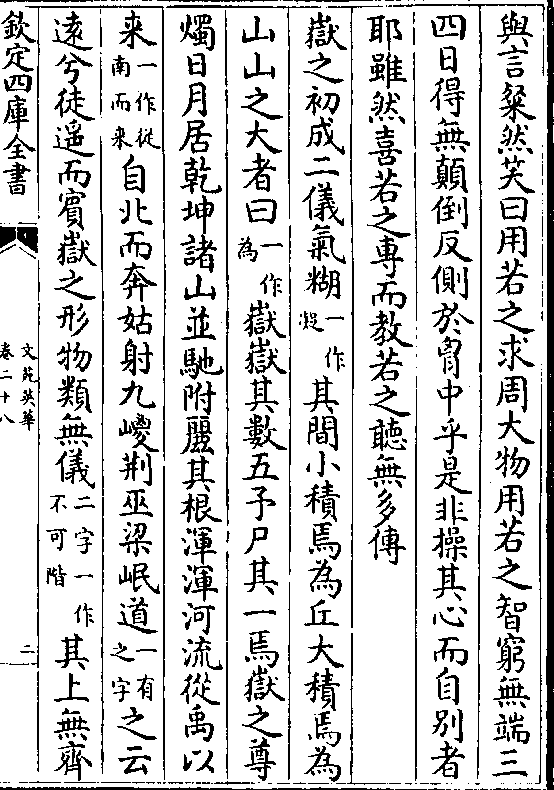 與言粲然笑曰用若之求周大物用若之智窮無端三
四日得無顛倒反側於胷中乎是非操其心而自別者
耶雖然喜若之專而教若之聽無多傳
嶽之初成二儀氣糊一作凝其間小積焉為丘大積焉為
山山之大者曰一作為嶽嶽其數五予尸其一焉嶽之尊
燭日月居乾坤諸山並馳附麗其根渾渾河流從禹以
来一作從南而来自北而奔姑射九嵕荆巫梁岷道一有之字之云
逺兮徒遥而賓嶽之形物類無儀二字一作不可階其上無齊
欽定四庫全書
文苑英華
卷二十八
二